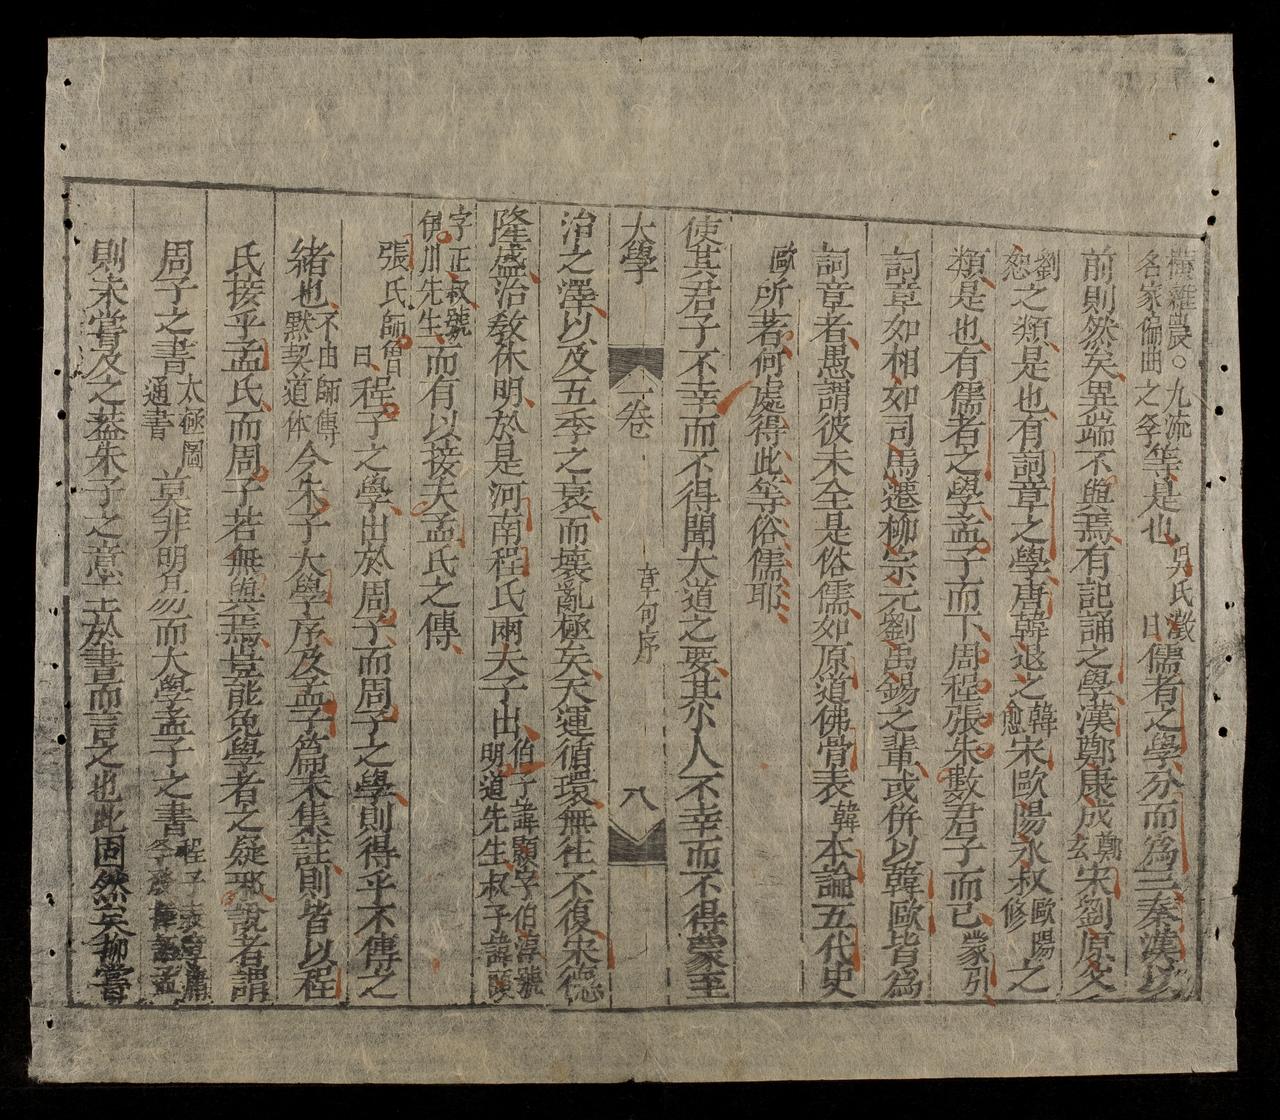 橫雜農○九流
名家偏曲之學等是也吳氏澂曰儒者之學分而為三秦漢以
前則然矣異端不與焉有記誦之學漢鄭康成鄭玄宋劉原父
劉恕之類是也有詞章之學唐韓退之韓愈宋歐陽永叔歐陽修之
類是也有儒者之學孟子而下周程張朱數君子而已蒙引
詞章如相如司馬遷柳宗元劉禹錫之輩或併以韓歐皆為
詞章者愚謂彼未全是俗儒如原道佛骨表韓本論五代史
歐所著何處得此等俗儒耶
使其君子不幸而不得聞大道之要其小人不幸而不得蒙至
大學 一卷 章句序 八
治之澤以及五季之衰而壞亂極矣天運循環無往不復宋德
隆盛治教休明於是河南程氏兩夫子出伯子諱顥字伯淳號明道先生叔子諱頤
字正叔號伊川先生而有以接夫孟氏之傳
張氏師曾曰程子之學出於周子而周子之學則得乎不傳之
緒也不由師傳默契道体今朱子大學序及孟子篇末集註則皆以程
氏接乎孟氏而周子若無與焉豈能免學者之疑邪說者謂
周子之書太極圖通書莫非明易而大學孟子之書程子表章庸學發揮語孟
則未嘗及之蓋朱子之意主於書而言之也此固然矣抑嘗